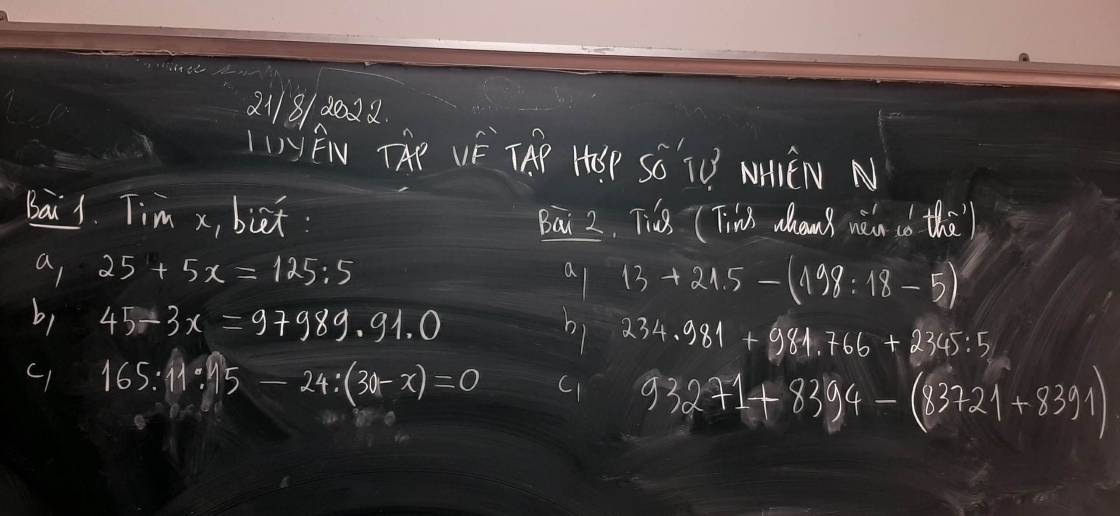 21/8/2022.
LUYÊN TẬP VỀ TẬP HỢP SỐ TỰ NHIÊN N
Bài 1. Tìm x, biết:
a, 25 + 5x = 125:5
b, 45 - 3x = 97989.91.0
c, 165:11:15 - 24:(30-x) = 0
Bài 2. Tính (Tính nhanh nếu có thể)
a, 13 + 21.5 - (198:18 - 5)
b, 234.981 + 981.766 + 2345:5
c, 93271 + 8394 - (83721 + 8391)